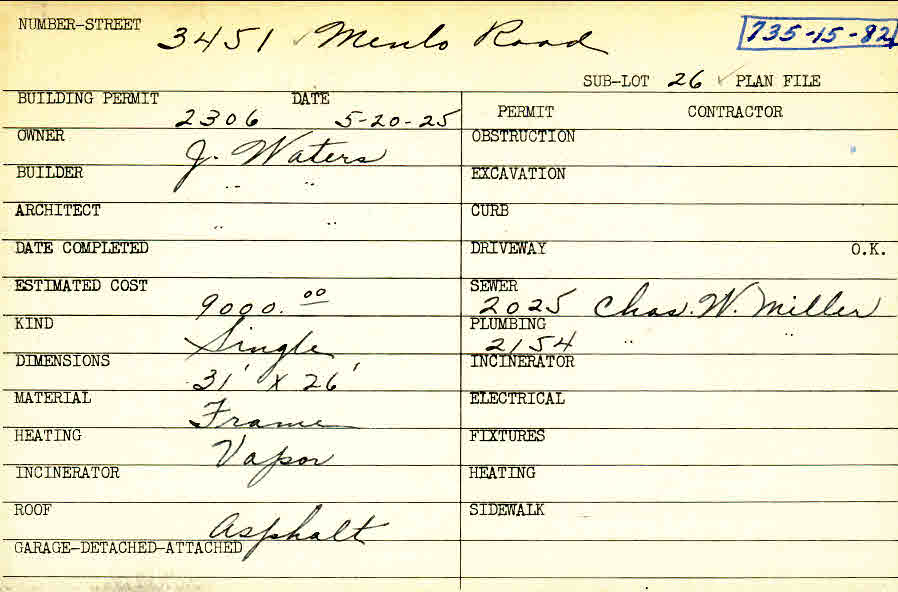 NUMBER-STREET 3451 ✓ Menlo Road 735-15-82
SUB-LOT 26 ✓ PLAN FILE
BUILDING PERMIT 2306 DATE 5-20-25
OWNER J. Waters
BUILDER " "
ARCHITECT " "
DATE COMPLETED
ESTIMATED COST 9000.00
KIND Single
DIMENSIONS 31' X 26'
MATERIAL Frame
HEATING Vapor
INCINERATOR
ROOF Asphalt
GARAGE-DETACHED-ATTACHED
PERMIT CONTRACTOR
OBSTRUCTION
EXCAVATION
CURB
DRIVEWAY O.K.
SEWER 2025 Chas. W. Miller
PLUMBING 2154 " "
INCINERATOR
ELECTRICAL
FIXTURES
HEATING
SIDEWALK